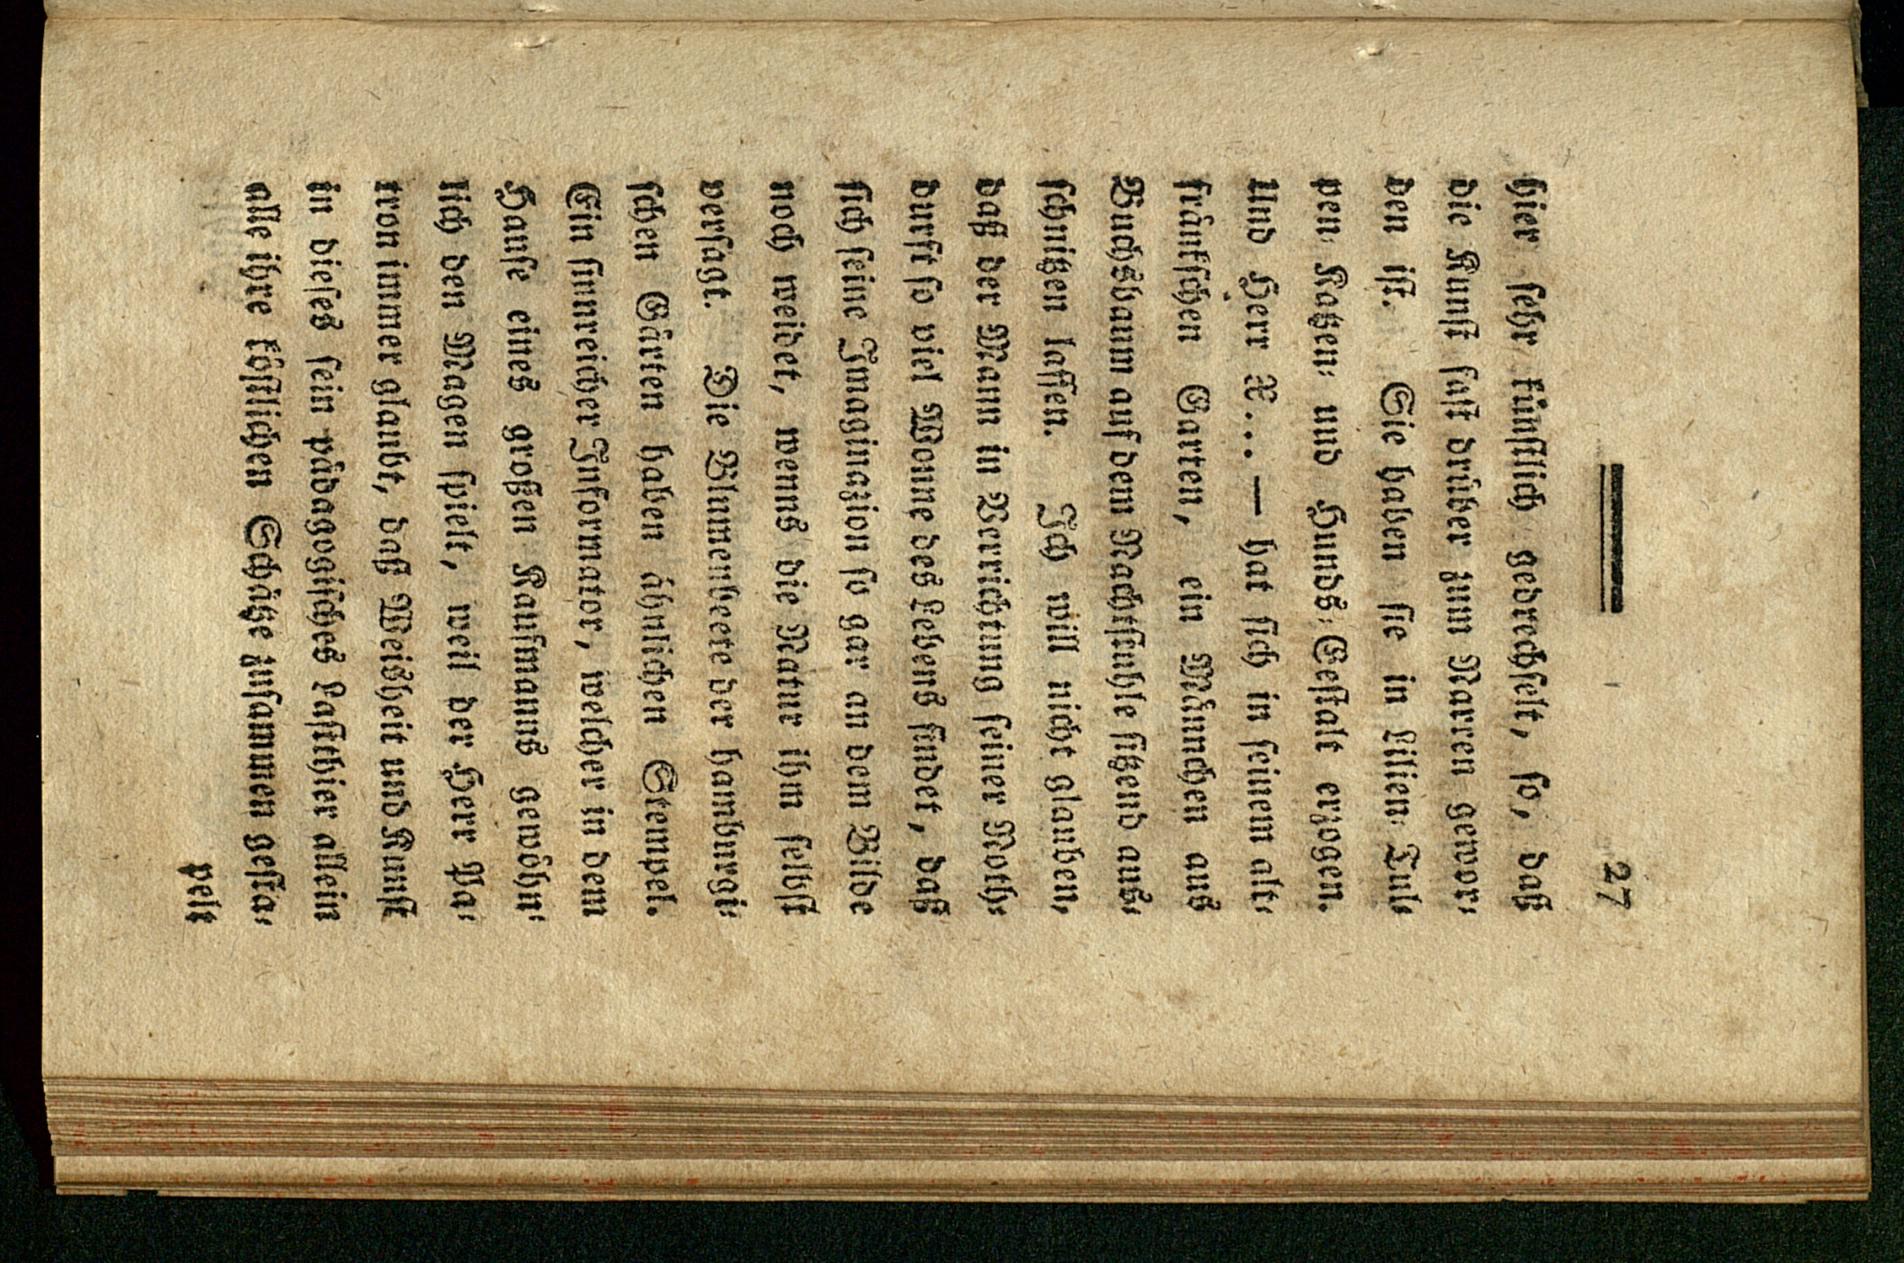 27
hier sehr künstlich gedrechselt, so, daß
die Kunst fast drüber zum Narren gewor-
den ist. Sie haben sie in Lilien- Tul-
pen- Katzen- und Hunds-Gestalt erzogen.
Und Herr X... — hat sich in seinem alt-
fränkschen Garten, ein Männchen aus
Buchsbaum auf dem Nachtstuhle sitzend aus-
schnitzen lassen. Ich will nicht glauben,
daß der Mann in Verrichtung seiner Noth-
durft so viel Wonne des Lebens findet, daß
sich seine Imaginazion so gar an dem Bilde
noch weidet, wenns die Natur ihm selbst
versagt. Die Blumenbeete der hamburgi-
schen Gärten haben ähnlichen Stempel.
Ein sinnreicher Informator, welcher in dem
Hause eines großen Kaufmanns gewöhn-
lich den Magen spielt, weil der Herr Pa-
tron immer glaubt, daß Weisheit und Kunst
in dieses sein pädagogisches Lastthier allein
alle ihre köstlichen Schätze zusammen gesta-
pelt